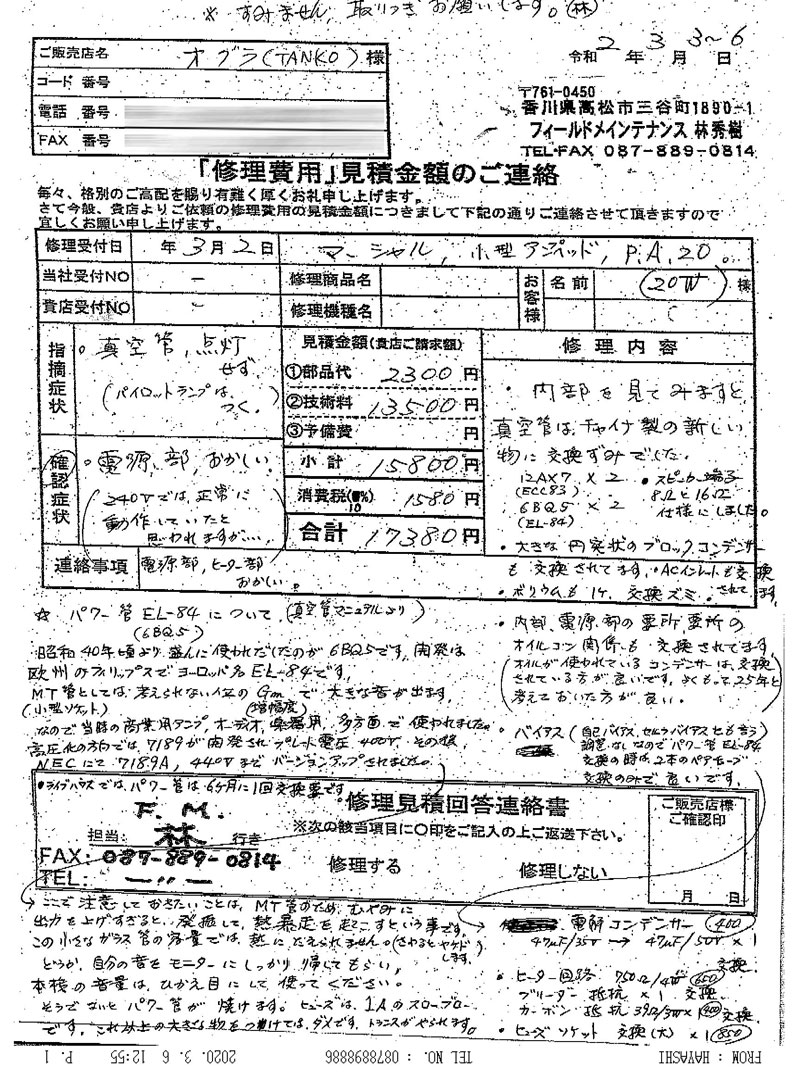 ※ すみません、取りつぎお願いします。㊗林
ご販売店名 オグラ(TANKO) 様
コード 番号
電話 番号
FAX 番号
令和 2 年 3 月 3~6 日
〒761-0450
香川県高松市三谷町1890-1
フィールドメインテナンス 林秀樹
TEL・FAX 087-889-0814
「修理費用」見積金額のご連絡
毎々、格別のご高配を賜り有難く厚くお礼申し上げます。
さて今般、貴店よりご依頼の修理費用の見積金額につきまして下記の通りご連絡させて頂きますので
宜しくお願い申し上げます。
修理受付日 年 3月 2日 マーシャル, 小型アンプヘッド, P.A.20。
当社受付NO － 修理商品名 お客様 名前 (20W) 様
貴店受付NO － 修理機種名
指摘症状
。真空管,点灯
せず。
(パイロットランプは、
つく。)
確認症状
。電源部,おかしい。
240Vでは、正常に
動作していたと
思われますが…、
連絡事項 電源部,ヒーター部
おかしい。
見積金額(貴店ご請求額)
①部品代 2300円
②技術料 13500円
③予備費 円
小計 15800円
消費税(10%) 1580円
合計 17380円
修理内容
・内部を見てみますと、
真空管は、チャイナ製の新しい
物に交換ずみでした。
12AX7 × 2
(ECC83)
6BQ5 × 2
(EL-84)
・スピーカー端子
8Ωと16Ω
仕様にしました。
・大きな円筒状のブロックコンデンサー
も交換されてます。・ACインレットも交換
・ボリウムも1ケ、交換ズミ。されてます。
☆ パワー管EL-84について、(真空管マニュアルより)
(6BQ5)
昭和40年頃より盛んに使われだしたのが6BQ5です,開発は
欧州のフィリップスでヨーロッパ名EL-84です。
MT管としては考えられない位のGmで大きな音が出ます。
(小型ソケット) (増幅度)
なので当時の商業用アンプ,オーディオ,楽器用,多方面で使われました。
高圧化の方向では7189が開発されプレート電圧400V,その後,
NECにて7189A,440Vまでバージョンアップされました。
・内部,電源部の要所,要所の
オイルコン関係も交換されてます
オイルが使われているコンデンサーは,交換
されている方が良いです。よくもって25年と
考えておいた方が良い。
・バイアス (自己バイアス,セルフバイアスとも言う)
調整なしなのでパワー管EL-84
交換の時は、2本のペアチューブ
交換のみで良いです。
●ライブハウスでは、パワー管は6ヶ月に1回交換要です。
F.M.
担当: 林 行き
FAX: 087-889-0814
TEL: 〃
修理見積回答連絡書
※次の該当項目に○印をご記入の上ご返送下さい。
修理する 修理しない
ご販売店様
ご確認印
月 日
→ ここで注意しておきたいことは、MT管のため,むやみに
出力を上げすぎると、発振して,熱暴走を起こすという事です。
この小さなガラス管の容量では、熱にたえられません。(さわるとヤケドします。)
どうか,自分の音をモニターにしっかり帰してもらい,
本機の音量は、ひかえ目にして使ってください。
そうでないとパワー管が焼けます。ヒューズは、1Aのスローブロー
です。これ以上の大きな物をつけてはダメです。トランスがやられます。
→ 電解コンデンサー (400)
47μF/35V → 47μF/50V × 1
交換。
・ヒーター回路 750Ω/4W (650)
ブリーダー抵抗 × 1 交換
カーボン抵抗 39Ω/3W × 1 (400) 交換
・ヒューズソケット 交換(大) × 1 (850)
FROM : HAYASHI TEL NO. : 0878898886 2020. 3. 6 12:55 P. 1